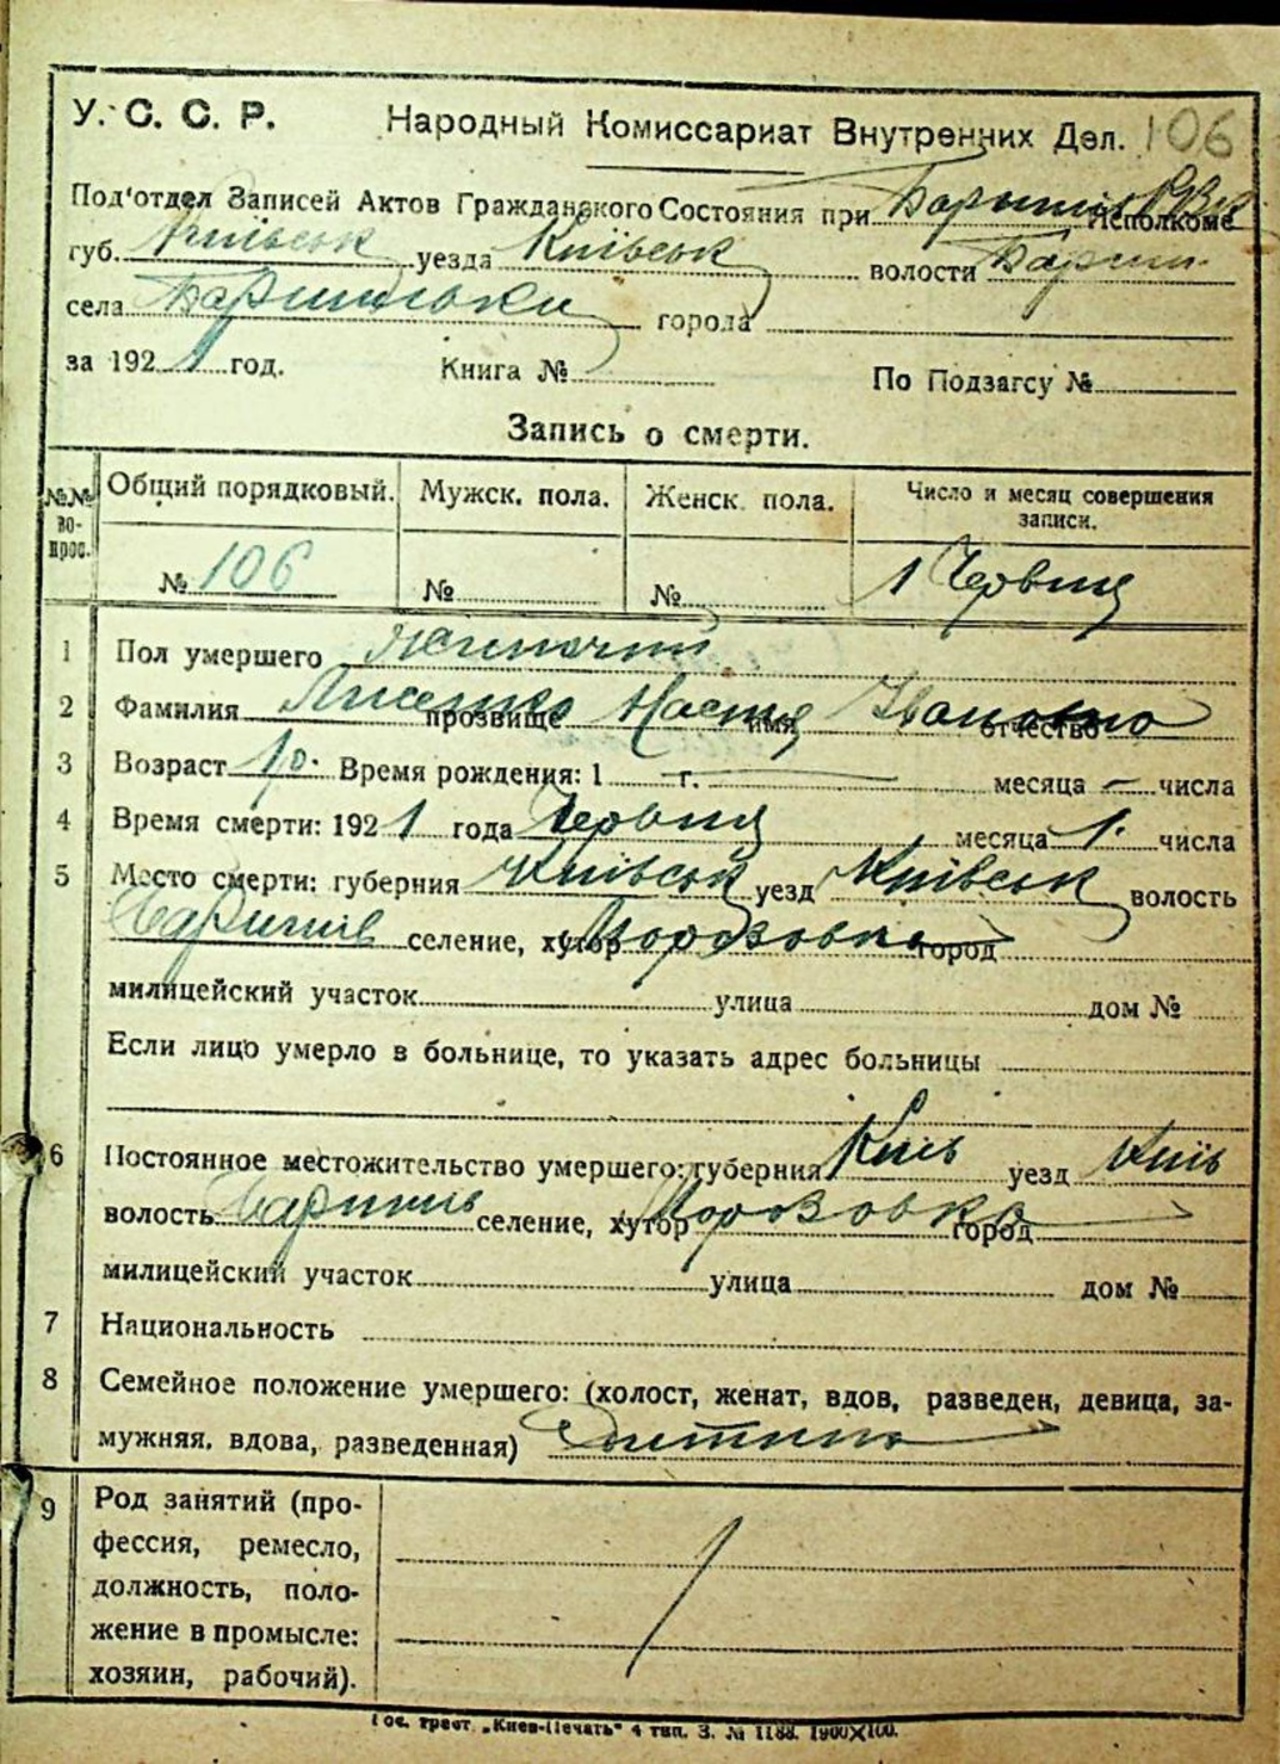 У. С. С. Р. Народный Комиссариат Внутренних Дел. 106
Под'отдел Записей Актов Гражданского Состояния при Исполкоме
губ. Київськ уезда Київськ волости Бариш
села Баришівки города
за 1921 год. Книга № По Подзагсу №
Запись о смерти.
№№ во- прос. Общий порядковый. Мужск. пола. Женск. пола. Число и месяц совершения записи.
№ 106 № № 1 Червця
1 Пол умершего Жіночий
2 Фамилия Лисенко прозвище Настя имя Івановно отчество
3 Возраст 1 р. Время рождения: 1 г. месяца — числа
4 Время смерти: 1921 года Червця месяца 1. числа
5 Место смерти: губерния Київськ уезд Київськ волость
Баришів селение, хутор Морозовка город
милицейский участок улица дом №
Если лицо умерло в больнице, то указать адрес больницы
6 Постоянное местожительство умершего: губерния Київ уезд Київ
волость Баришів селение, хутор Морозовка город
милицейский участок улица дом №
7 Национальность
8 Семейное положение умершего: (холост, женат, вдов, разведен, девица, за-
мужняя, вдова, разведенная) Дитина
9 Род занятий (про-
фессия, ремесло,
должность, поло-
жение в промысле:
хозяин, рабочий).
Гос. трест „Киев-Печать" 4 тип. З. № 1188. 1900×100.